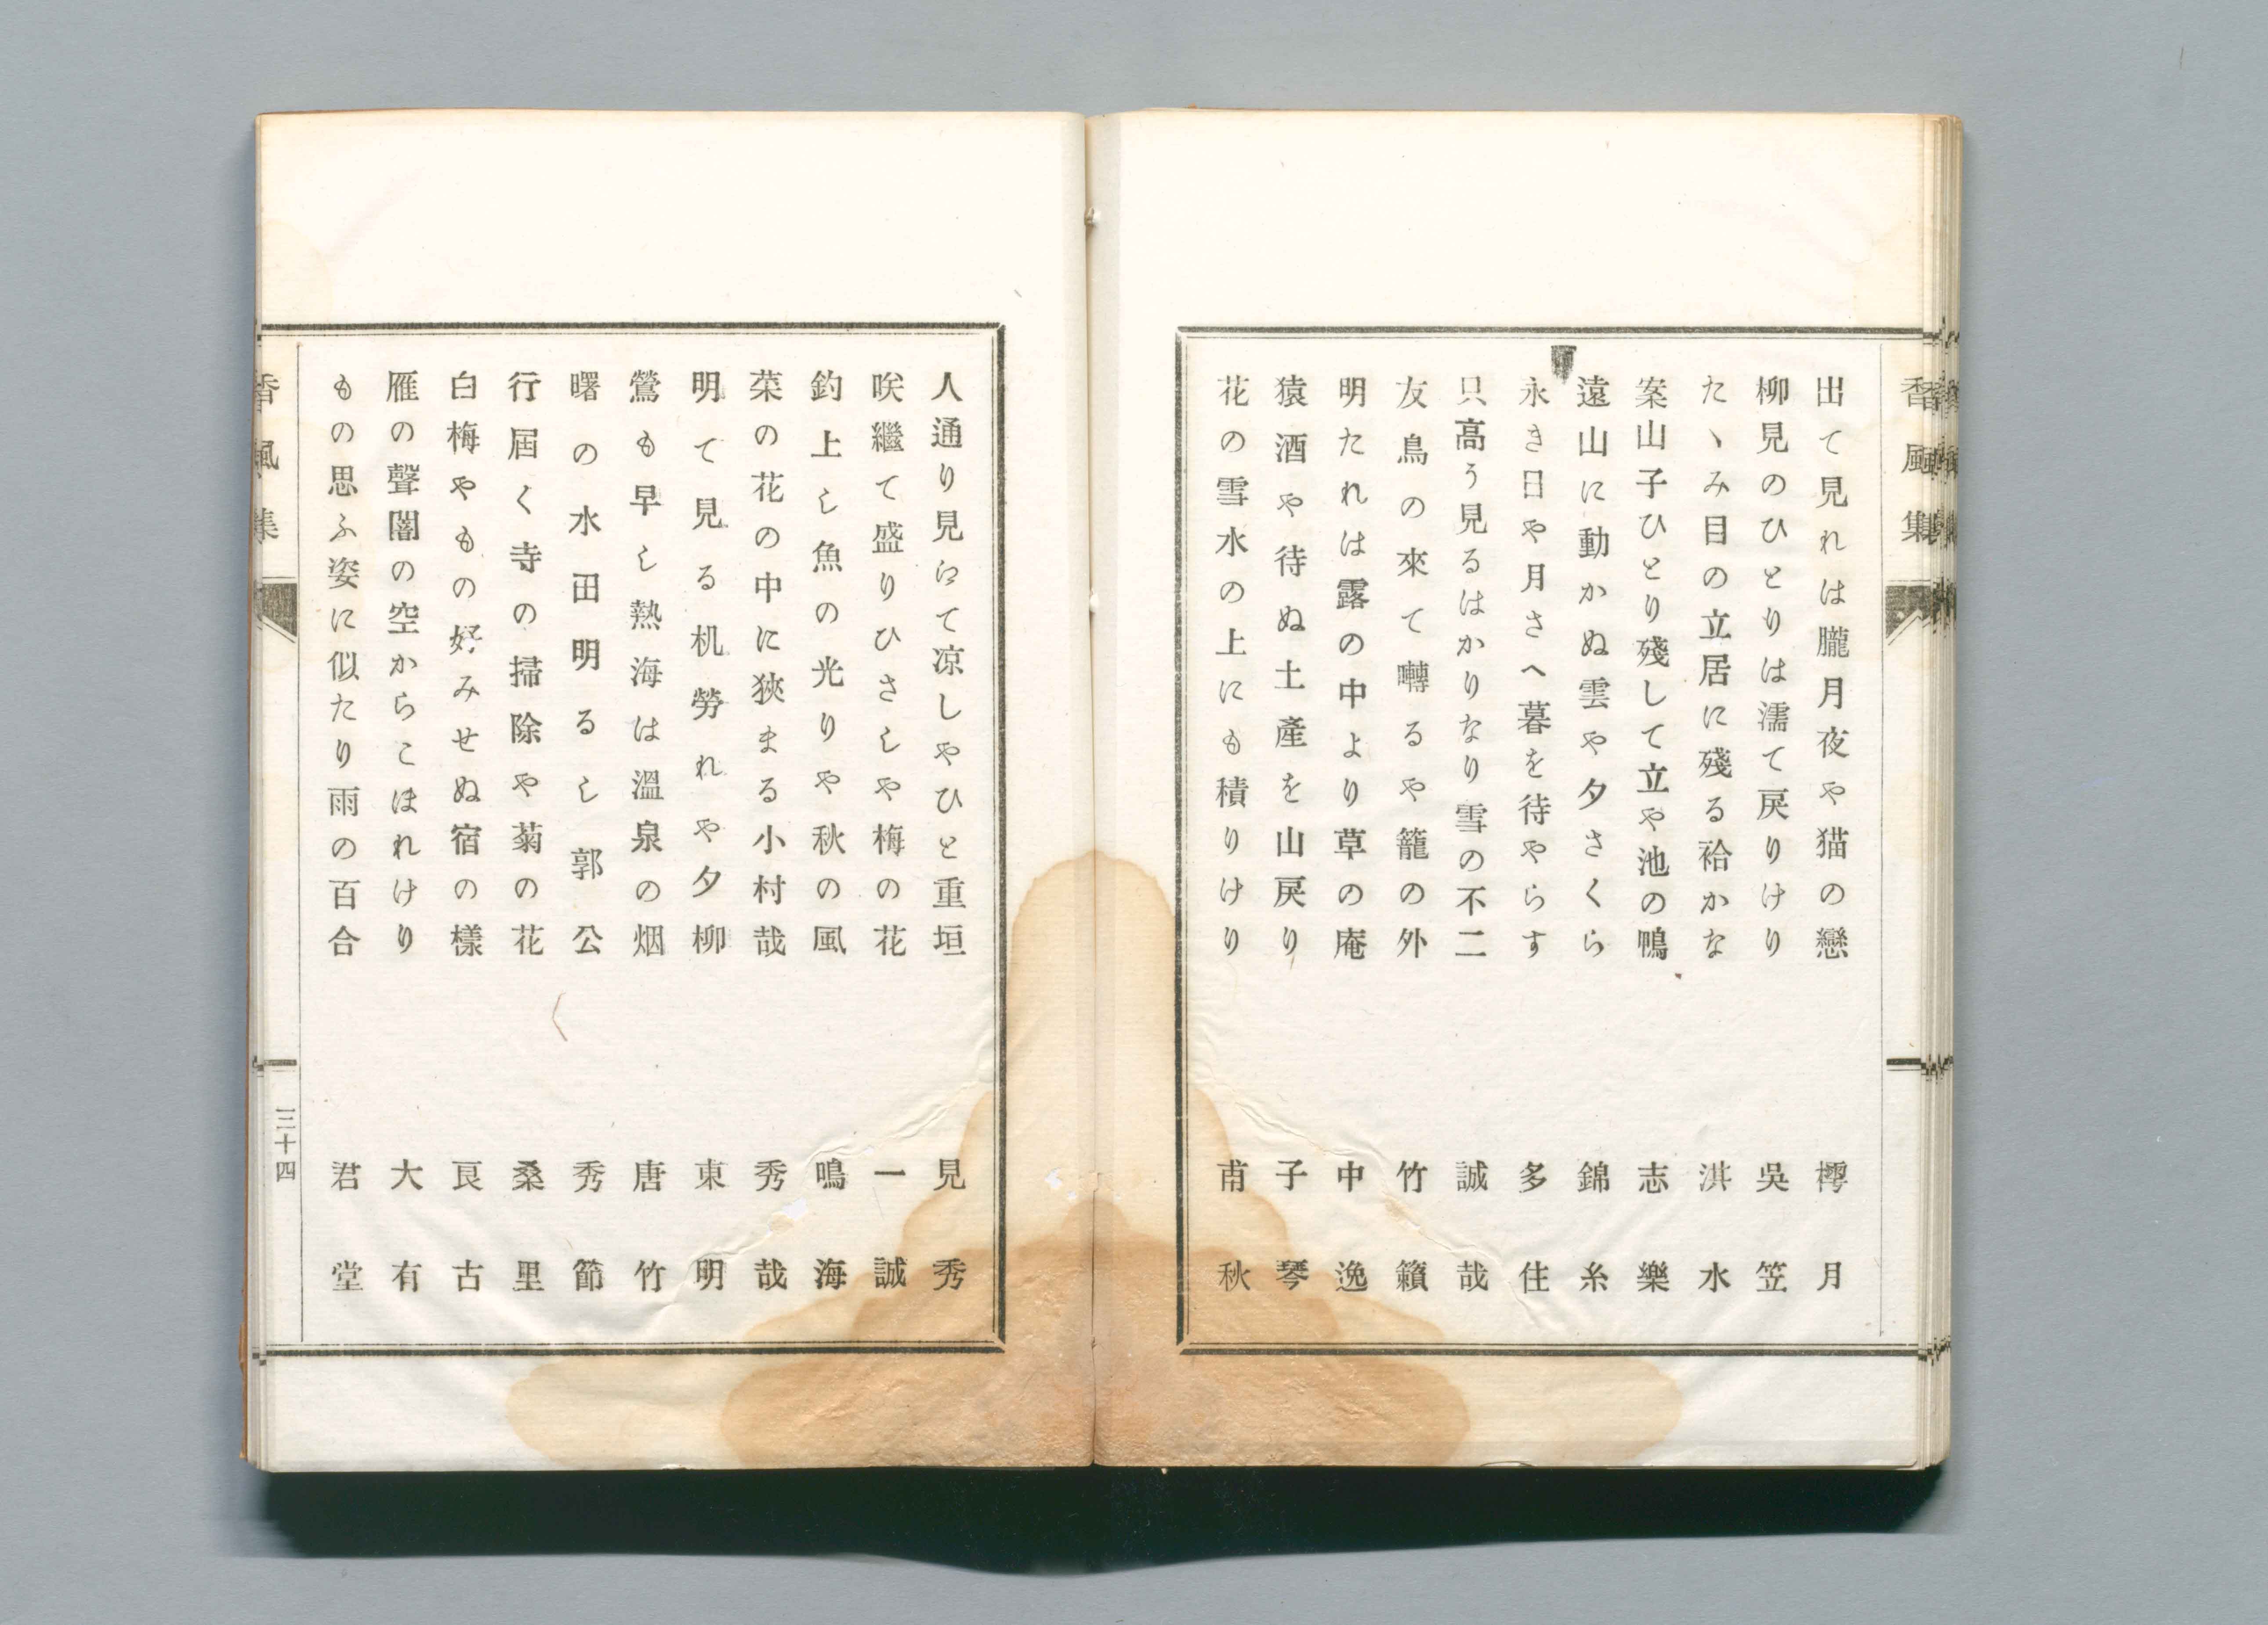 香風集
出て見れは朧月夜や猫の戀 樗月
柳見のひとりは濡て戻りけり 吳笠
たゝみ目の立居に殘る袷かな 洪水
案山子ひとり殘して立や池の鴨 志樂
遠山に動かぬ雲や夕さくら 錦糸
永き日や月さへ暮を待やらす 多住
只高う見るはかりなり雪の不二 誠哉
友鳥の來て囀るや籠の外 竹籟
明たれは露の中より草の庵 中逸
猿酒や待ぬ土產を山戻り 子琴
花の雪水の上にも積りけり 甫秋
人通り見にて凉しやひと重垣 見秀
咲繼て盛りひさしや梅の花 一誠
釣上し魚の光りや秋の風 鳴海
菜の花の中に狹まる小村哉 秀哉
明て見る机勞れや夕柳 東明
鶯も早し熱海は溫泉の烟 唐竹
曙の水田明るし郭公 秀節
行屆く寺の掃除や菊の花 桑里
白梅やもの好みせぬ宿の樣 良古
雁の聲闇の空からこほれけり 大有
もの思ふ姿に似たり雨の百合 君堂
香風集
三十四